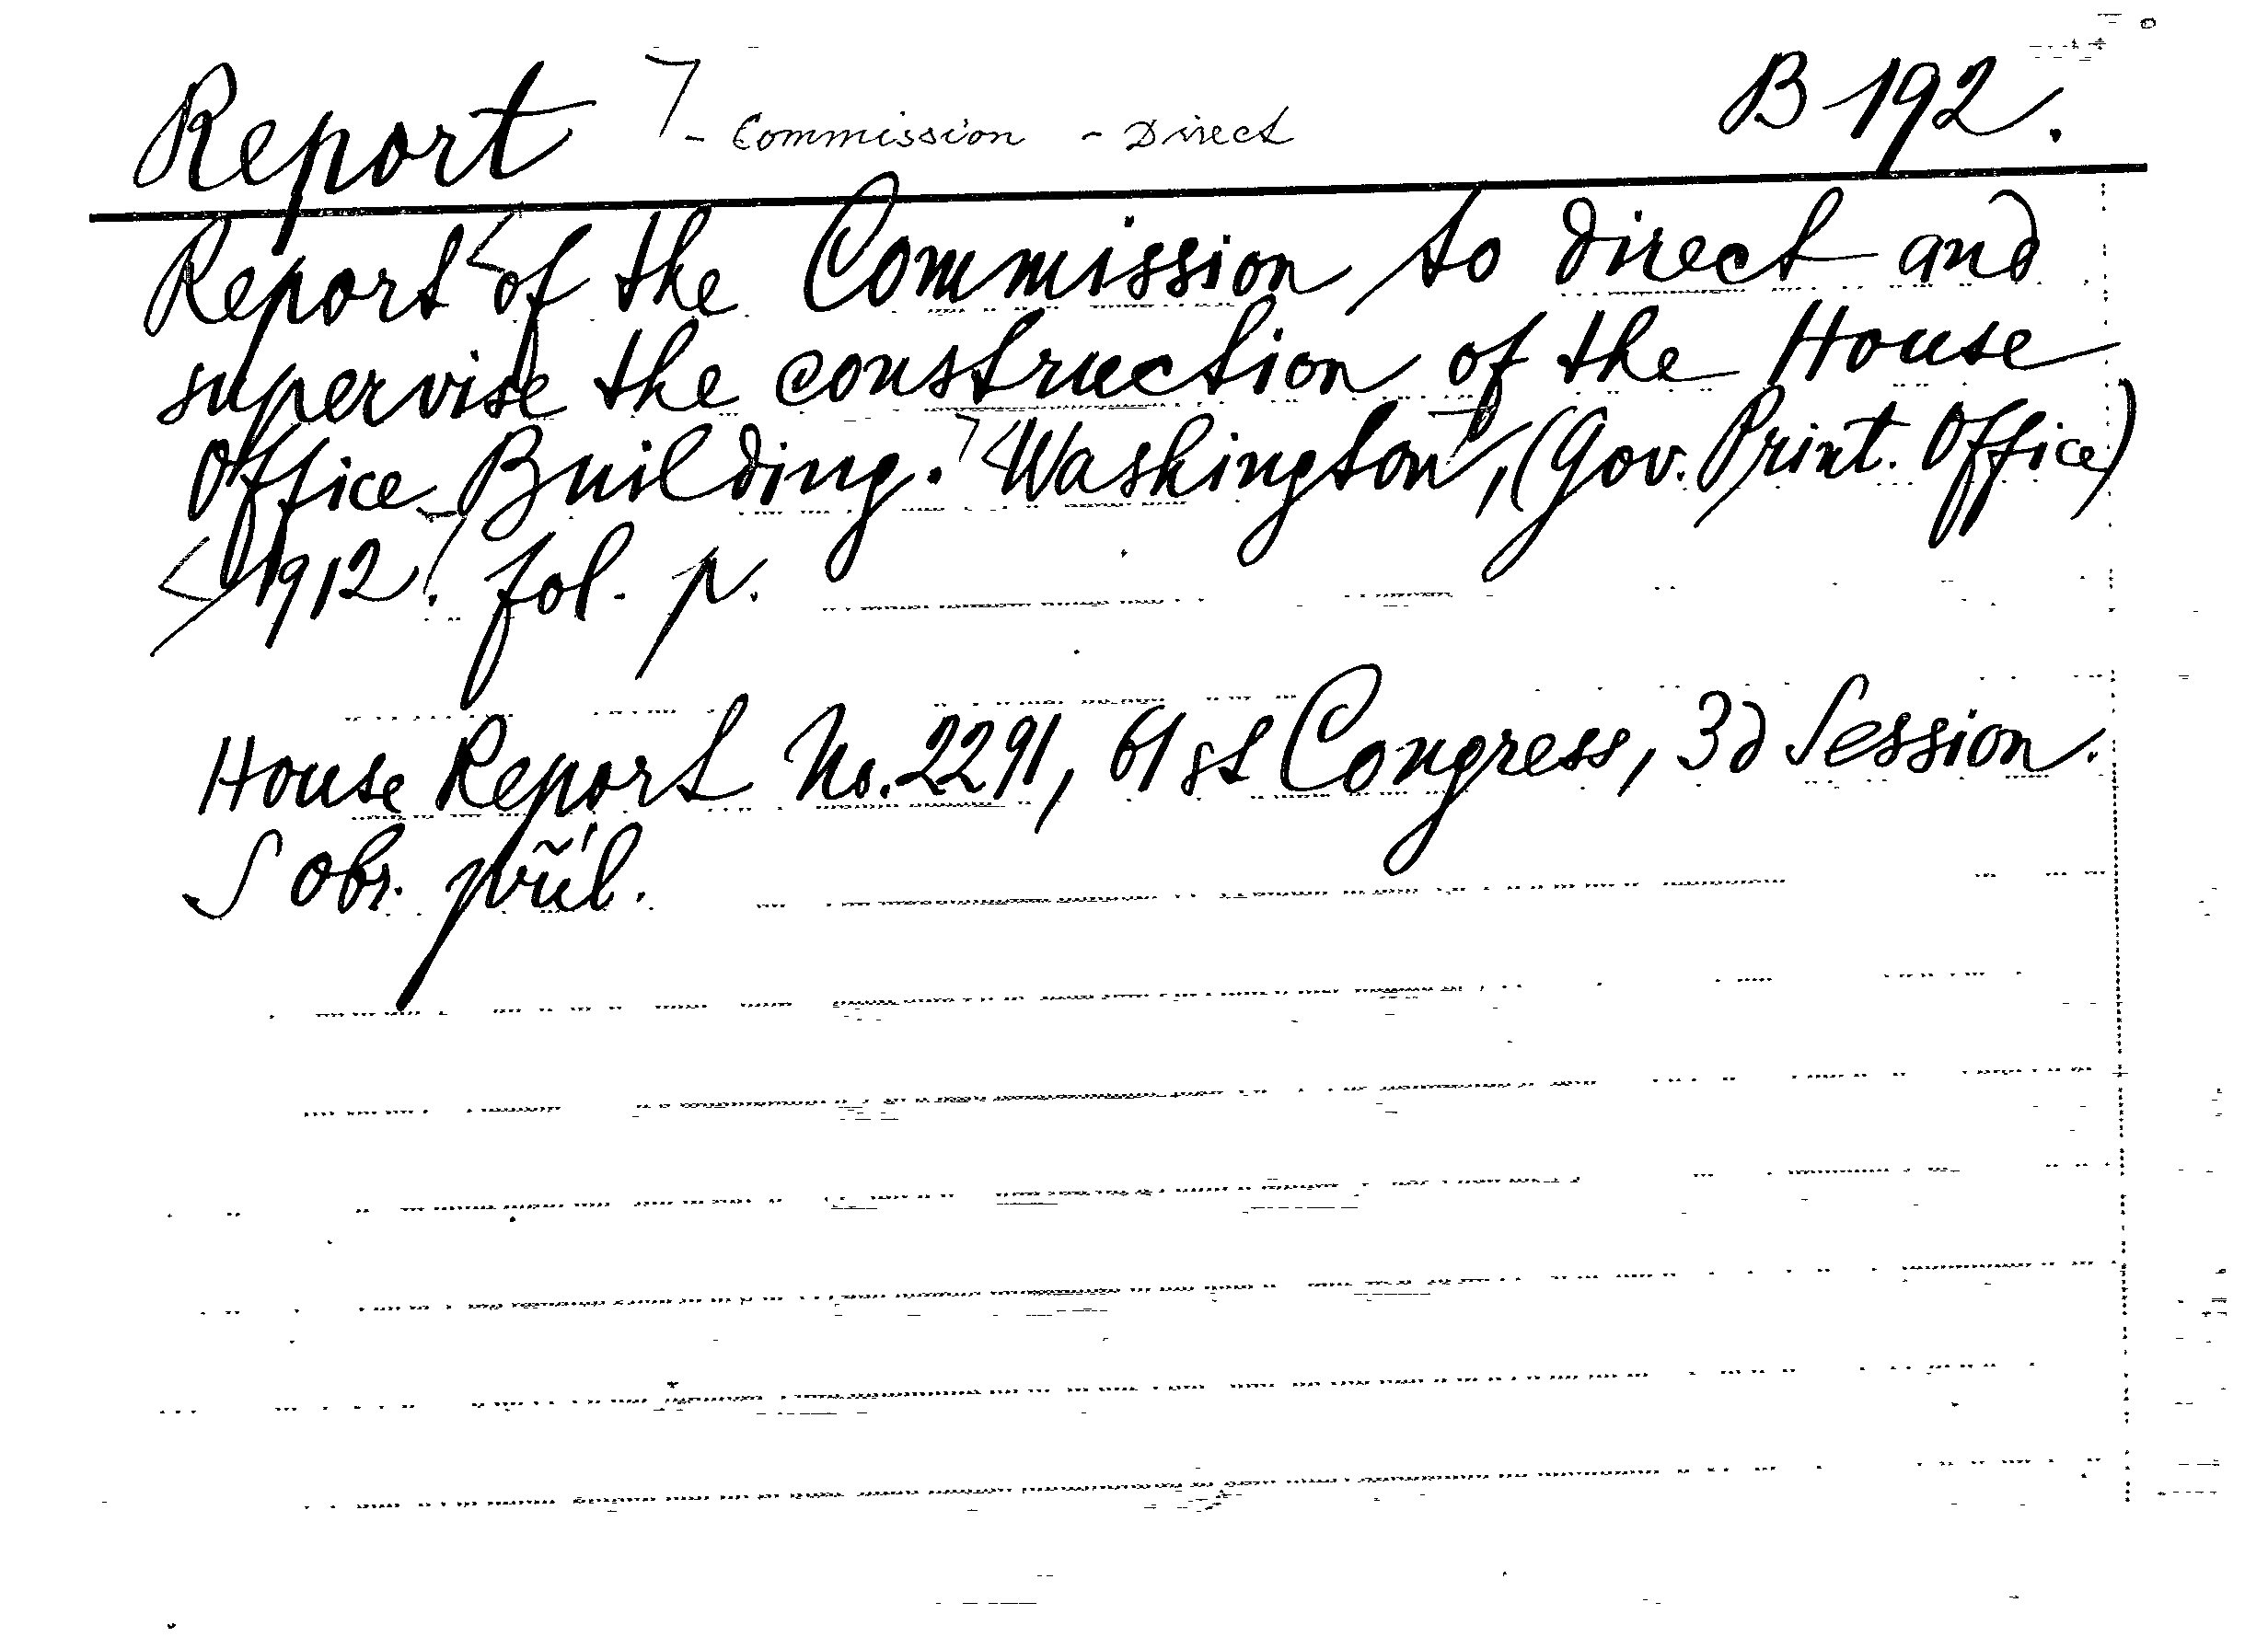 Report - Commission - Direct B 192.
Report of the Commission to direct and
supervise the construction of the House
Office Building. Washington, (Gov. Print. Office)
1912. fol. p.
House Report No. 2291, 61st Congress, 3d Session.
S obr. příl.